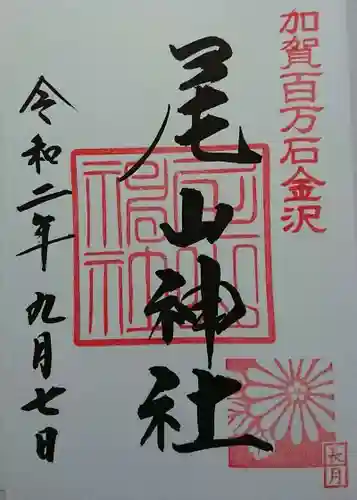 加賀百万石金沢
尾山神社
令和二年九月七日
尾山神社
長月